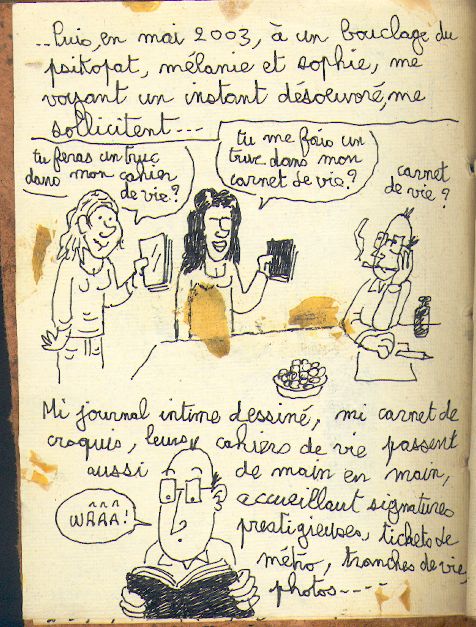 ...Puis, en mai 2003, à un bouclage du
psikopat, mélanie et sophie, me
voyant un instant désoeuvré, me
sollicitent...
tu feras un truc
dans mon cahier
de vie?
tu me fais un
truc dans mon
carnet de vie?
carnet
de vie?
Mi journal intime dessiné, mi carnet de
croquis, leurs cahiers de vie passent
aussi de main en main,
accueillant signatures
prestigieuses, tickets de
métro, tranches de vie
photos----
WÂÂÂ!